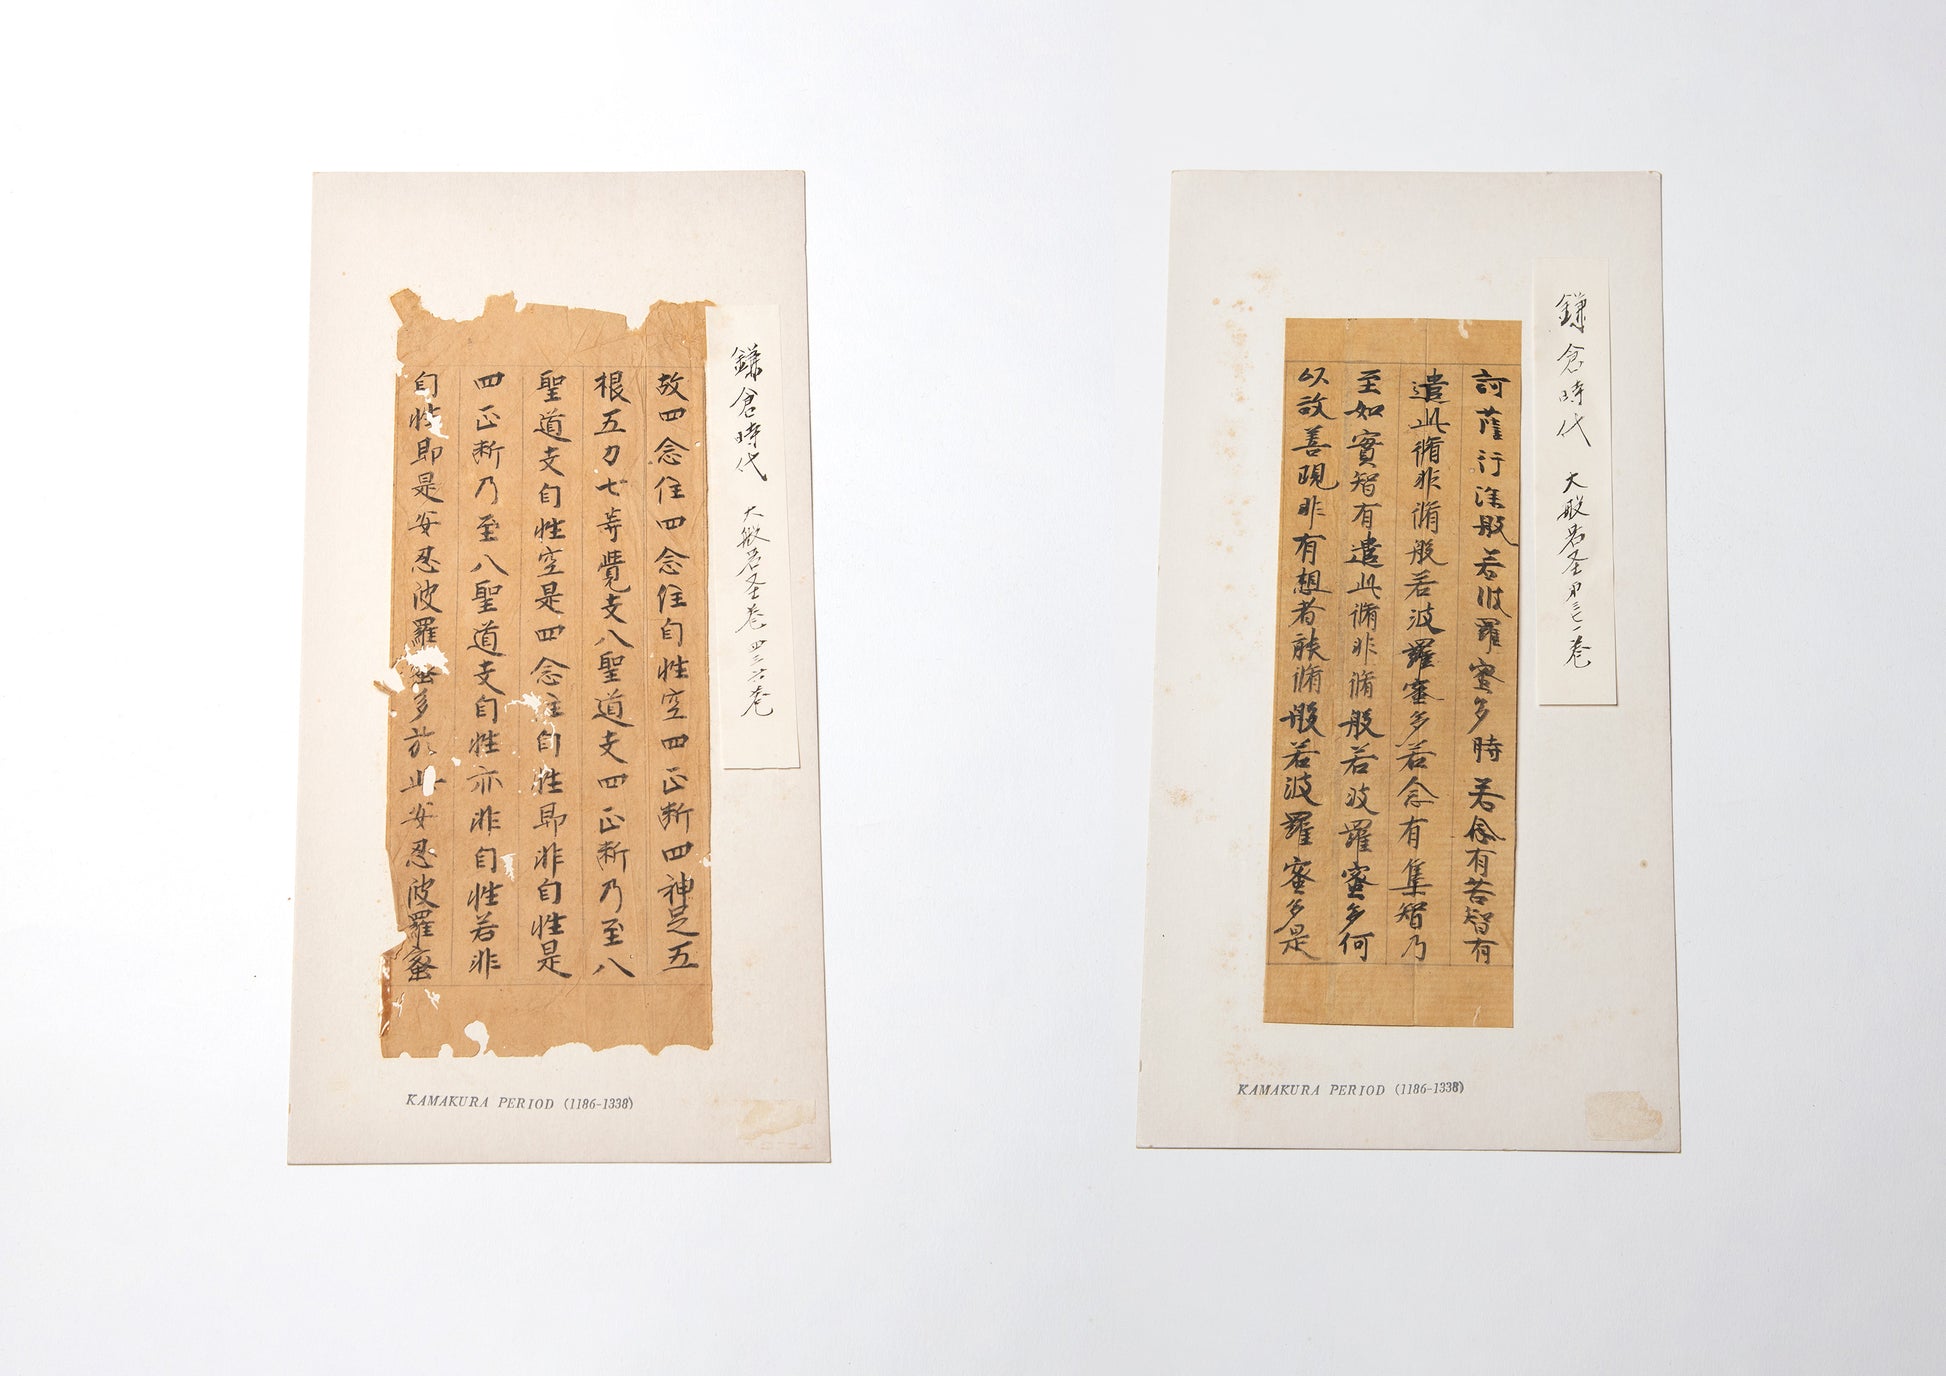 故四念住四念住自性空四正断四神足五
根五力七等覺支八聖道支四正断乃至八
聖道支自性空是四念住自性即非自性是
四正断乃至八聖道支自性亦非自性若非
自性即是安忍波羅蜜多於此安忍波羅蜜
鎌倉時代 大般若圣巻
KAMAKURA PERIOD (1186-1338)
訶薩行深般若波羅蜜多時若念有苦智有
遣此脩非脩般若波羅蜜多若念有集智乃
至如實智有遣此脩非脩般若波羅蜜多何
以故善現非有想者能脩般若波羅蜜多是
鎌倉時代 大般若圣巻
KAMAKURA PERIOD (1186-1338)